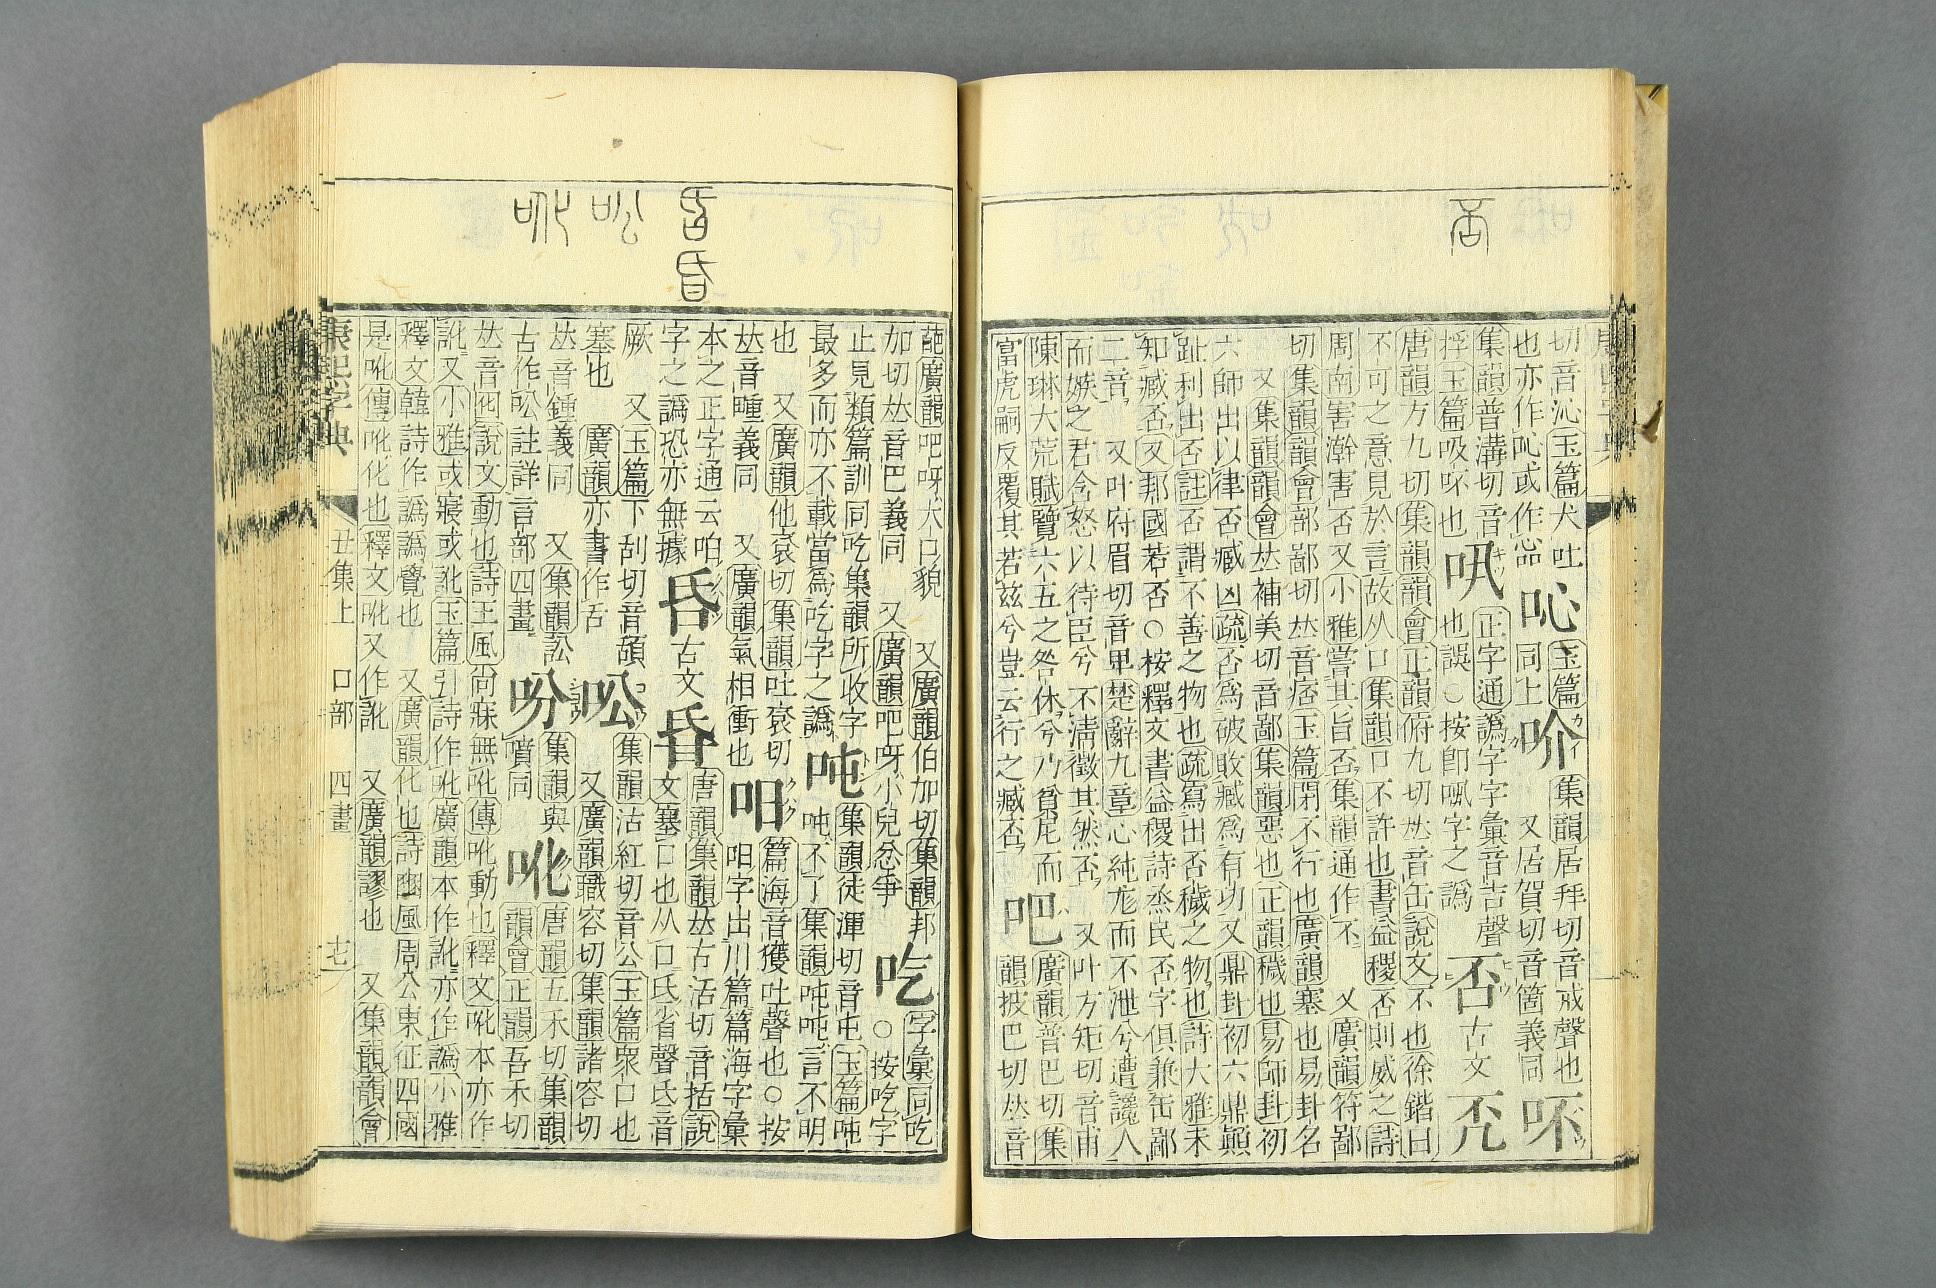 否
切音沁玉篇犬吐吣玉篇吤集韻居拜切音戒聲也
也亦作吣或作㕻同上又居賀切音箇義同吥
集韻普溝切音㕩正字通譌字字彙音吉聲否古文㱐
抔玉篇吸吥也也誤○按卽哌字之譌
唐韻方九切集韻韻會正韻俯九切𠀤音缶說文不也徐鍇曰
不可之意見於言故从口集韻口不許也書益稷否則威之詩
周南害澣害否又小雅嘗其旨否集韻通作不 又廣韻符鄙
切集韻韻會部鄙切𠀤音痞玉篇閉不行也廣韻塞也易卦名
又集韻韻會𠀤補美切音鄙集韻惡也正韻穢也易師卦初
六師出以律否臧凶疏否爲破敗臧爲有功又鼎卦初六鼎顚
趾利出否註否謂不善之物也疏寫出否穢之物也詩大雅未
知臧否又邦國若否○按釋文書益稷詩烝民否字俱兼缶鄙
二音 又叶府眉切音甲楚辭九章心純尨而不泄兮遭讒人
而嫉之君含怒以待臣兮不淸徵其然否 又叶方矩切音甫
陳琳大荒賦覽六五之咎休兮乃貧尼而吧廣韻普巴切集
富虎嗣反覆其若茲兮豈云行之臧否韻披巴切𠀤音
昏
昏
吆
吪
葩廣韻吧呀犬口貌 又廣韻伯加切集韻邦
加切𠀤音巴義同 又廣韻吧呀小兒忿爭吃字彙同吃
止見類篇訓同吃集韻所收字○按吃字
最多而亦不載當爲吃字之譌吨集韻徒渾切音屯玉篇吨
吨不了集韻吨吨言不明
也 又廣韻他袞切集韻吐袞切㕵篇海音獲吐聲也○按
𠀤音畽義同 又廣韻氣相衝也㕵字出川篇篇海字彙
本之正字通云㕵昏古文昏唐韻集韻𠀤古活切音括說
字之譌恐亦無據文塞口也从口氐省聲氐音
厥 又玉篇下刮切音頢㕬集韻沽紅切音公玉篇衆口也
塞也 廣韻亦書作舌 又廣韻職容切集韻諸容切
𠀤音鍾義同 又集韻訟吩集韻與吪唐韻五禾切集韻
古作㕬註詳言部四畫噴同韻會正韻吾禾切
𠀤音囮說文動也詩王風尙寐無吪傳吪動也釋文吪本亦作
訛又小雅或寢或訛玉篇引詩作吪廣韻本作訛亦作譌小雅
釋文韓詩作譌譌覺也 又廣韻化也詩豳風周公東征四國
是吪傳吪化也釋文吪又作訛 又廣韻謬也 又集韻韻會
康熙字典 丑集上 口部 四畫 十七